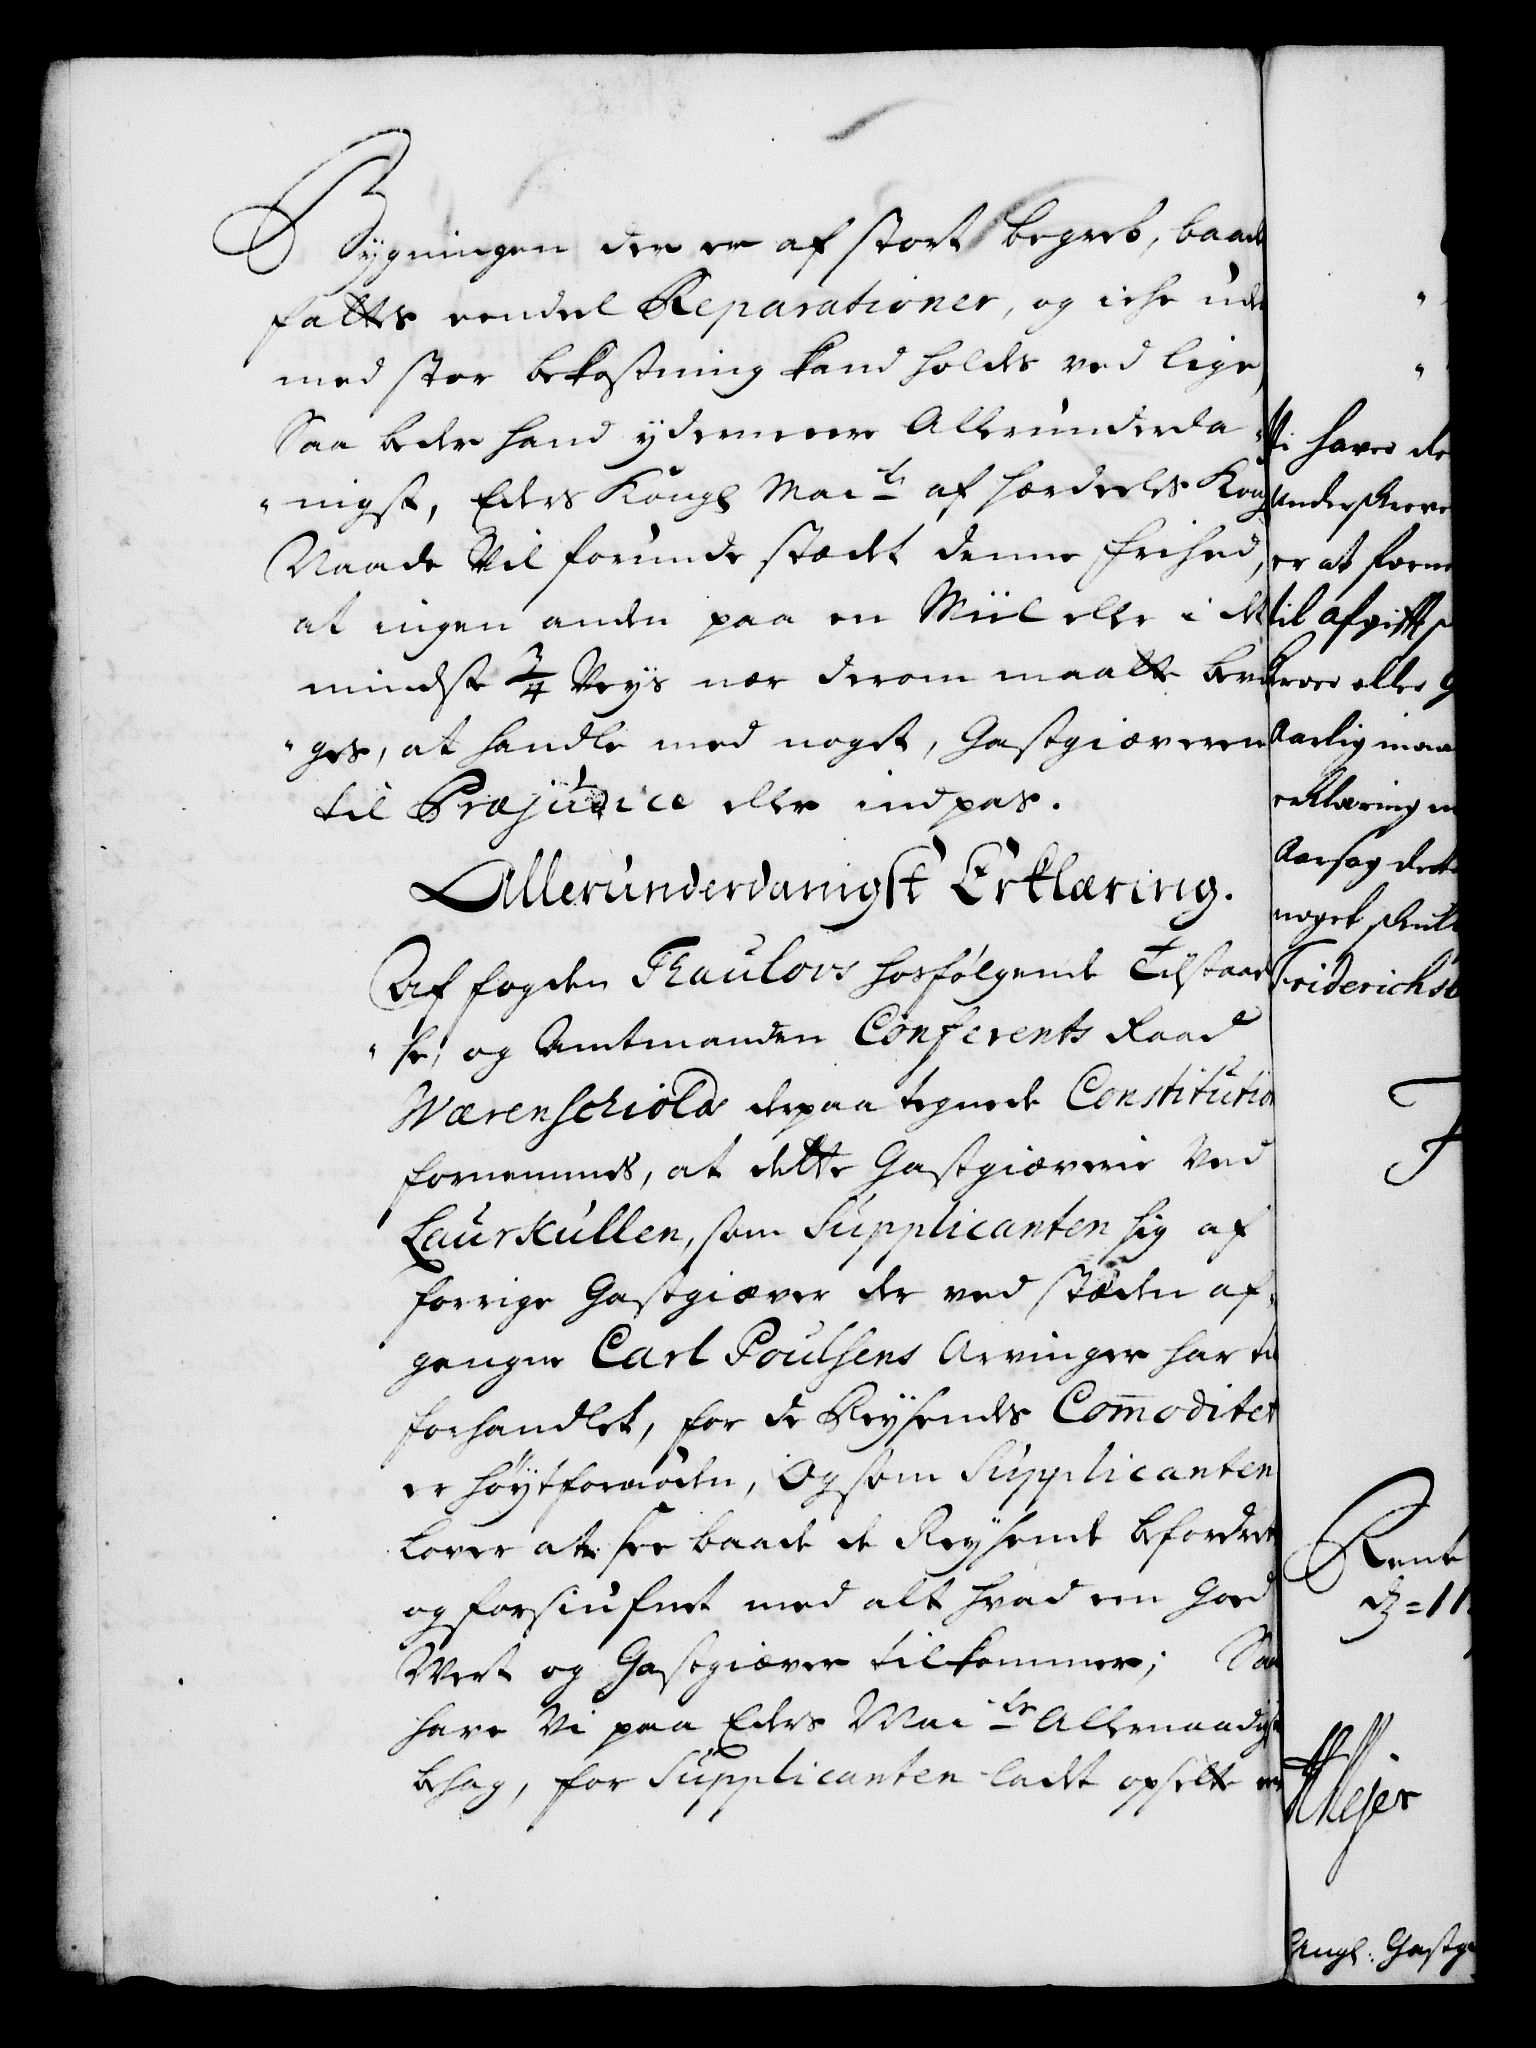 Bygningen der er af stort begreb, baade
fattes eendeel Reparationer, og iche uden
med stor bekostning kand holdes ved lige,
Saa beder hand ydermeere Allerunderda
"nigst, Eders Kongl Mai^ts af særdeeles Kong
Naade Vil forunde stædet denne frihed,
at ingen anden paa en Miil eller i det
mindste 3/4 Veys nær derom maatte bevil
"ges, at handle med noget, Gastgiæveren
til Præjudice eller indpas.
Allerunderdanigst Erklæring.
Af fogden Thaulovs hosfølgende Tilstaael
"se, og Amtmanden Conferents Raad
Wærenschiolds derpaa tegnede Constitution
fornemmes, at dette Gastgiæverie Ved
Laurkullen, som Supplicanten sig af
forrige Gastgiæver der ved stæden af
gangne Carl Poulsens Arvinger har til
forhandlet, for de Reysendes Commoditet
er høytfornøden, Og som Supplicanten
lover at see baade de Reysende befordret
og forsiufnet med alt hvad een Goed
Wert og Gastgiæver tilkommer; Saa
have Vi paa Eders Mai^ts Allernaadigste
behag, for Supplicanten ladet opsette een
"
"
Vi have de
Underskreve
er at forne
til afgifft
eller
Aarlig maa
erklæring
Aarsag
noget
Friderichs
Rente
=11
Meyer
Angl: Gastg